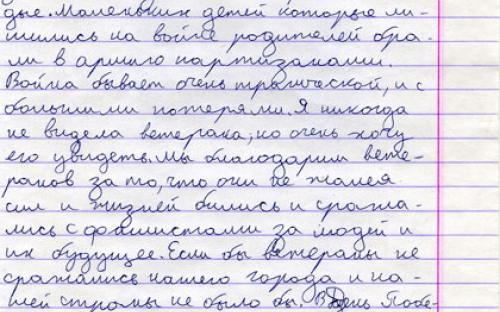 дые. Маленьких детей которые ли-
шились на войне родителей бра-
ли в армию партизанами.
Война бывает очень трагической, и с
большими потерями. Я никогда
не видела ветерана, но очень хочу
его увидеть. Мы благодарим вете-
ранов за то, что они не жалея
сил и жизней бились и сража-
лись с фашистами за людей и
их будущее. Если бы ветераны не
сражались нашего города и на-
шей страны не было бы. В День Побе-